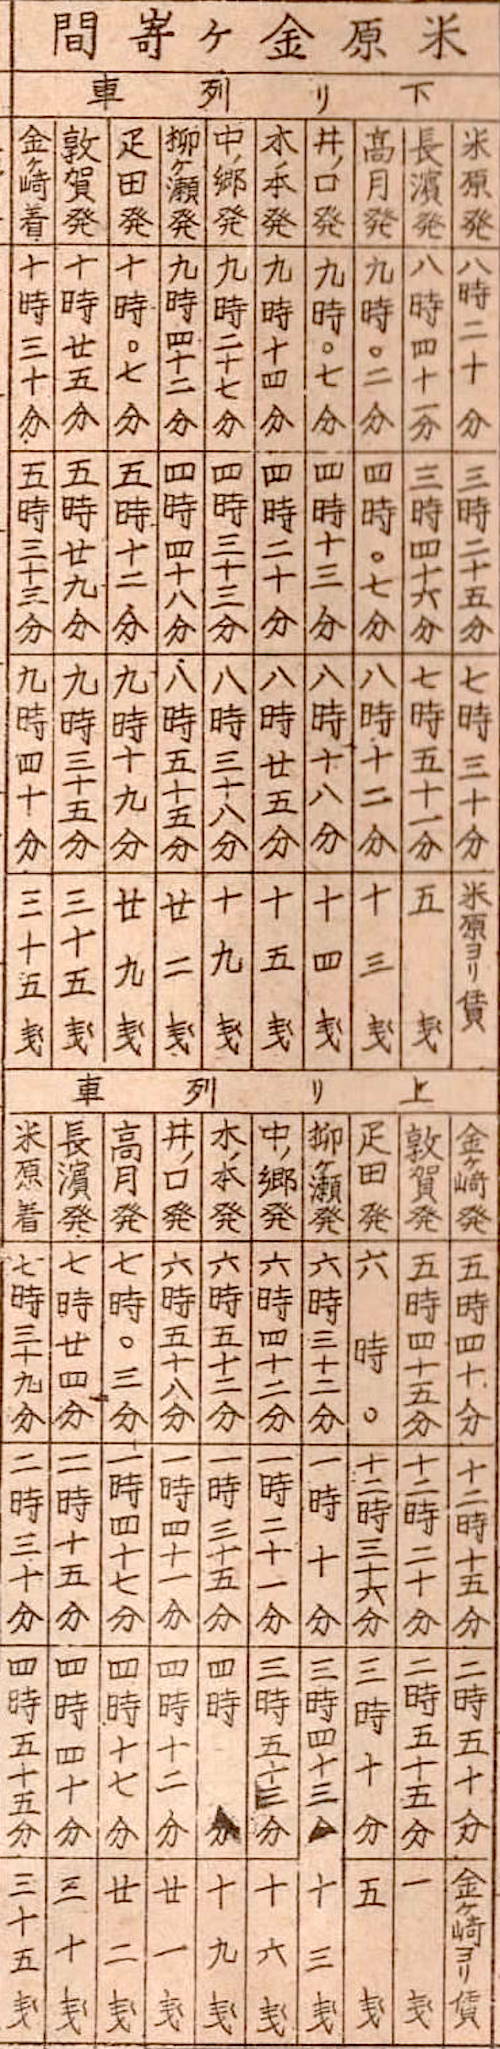 米原金ヶ嵜間
下リ列車
米原発 八時二十分 三時二十五分 七時三十分 米原ヨリ賃
長濱発 八時四十一分 三時四十六分 七時五十一分 五戔
高月発 九時〇二分 四時〇七分 八時十二分 十三戔
井ノ口発 九時〇七分 四時十三分 八時十八分 十四戔
木ノ本発 九時十四分 四時二十分 八時廿五分 十五戔
中ノ郷発 九時二十七分 四時三十三分 八時三十八分 十九戔
柳ヶ瀬発 九時四十二分 四時四十八分 八時五十五分 廿二戔
疋田発 十時〇七分 五時十二分 九時十九分 廿九戔
敦賀発 十時廿五分 五時廿九分 九時三十五分 三十五戔
金ヶ崎着 十時三十分 五時三十三分 九時四十分 三十五戔
上リ列車
金ヶ崎発 五時四十分 十二時十五分 二時五十分 金ヶ崎ヨリ賃
敦賀発 五時四十五分 十二時二十分 二時五十五分 一戔
疋田発 六時〇 十二時三十六分 三時十分 五戔
柳ヶ瀬発 六時三十二分 一時十分 三時四十三分 十三戔
中ノ郷発 六時四十二分 一時二十一分 三時五十三分 十六戔
木ノ本発 六時五十二分 一時三十五分 四時 分 十九戔
井ノ口発 六時五十八分 一時四十一分 四時十二分 廿一戔
高月発 七時〇三分 一時四十七分 四時十七分 廿二戔
長濱発 七時廿四分 二時十五分 四時四十分 三十戔
米原着 七時三十九分 二時三十分 四時五十五分 三十五戔